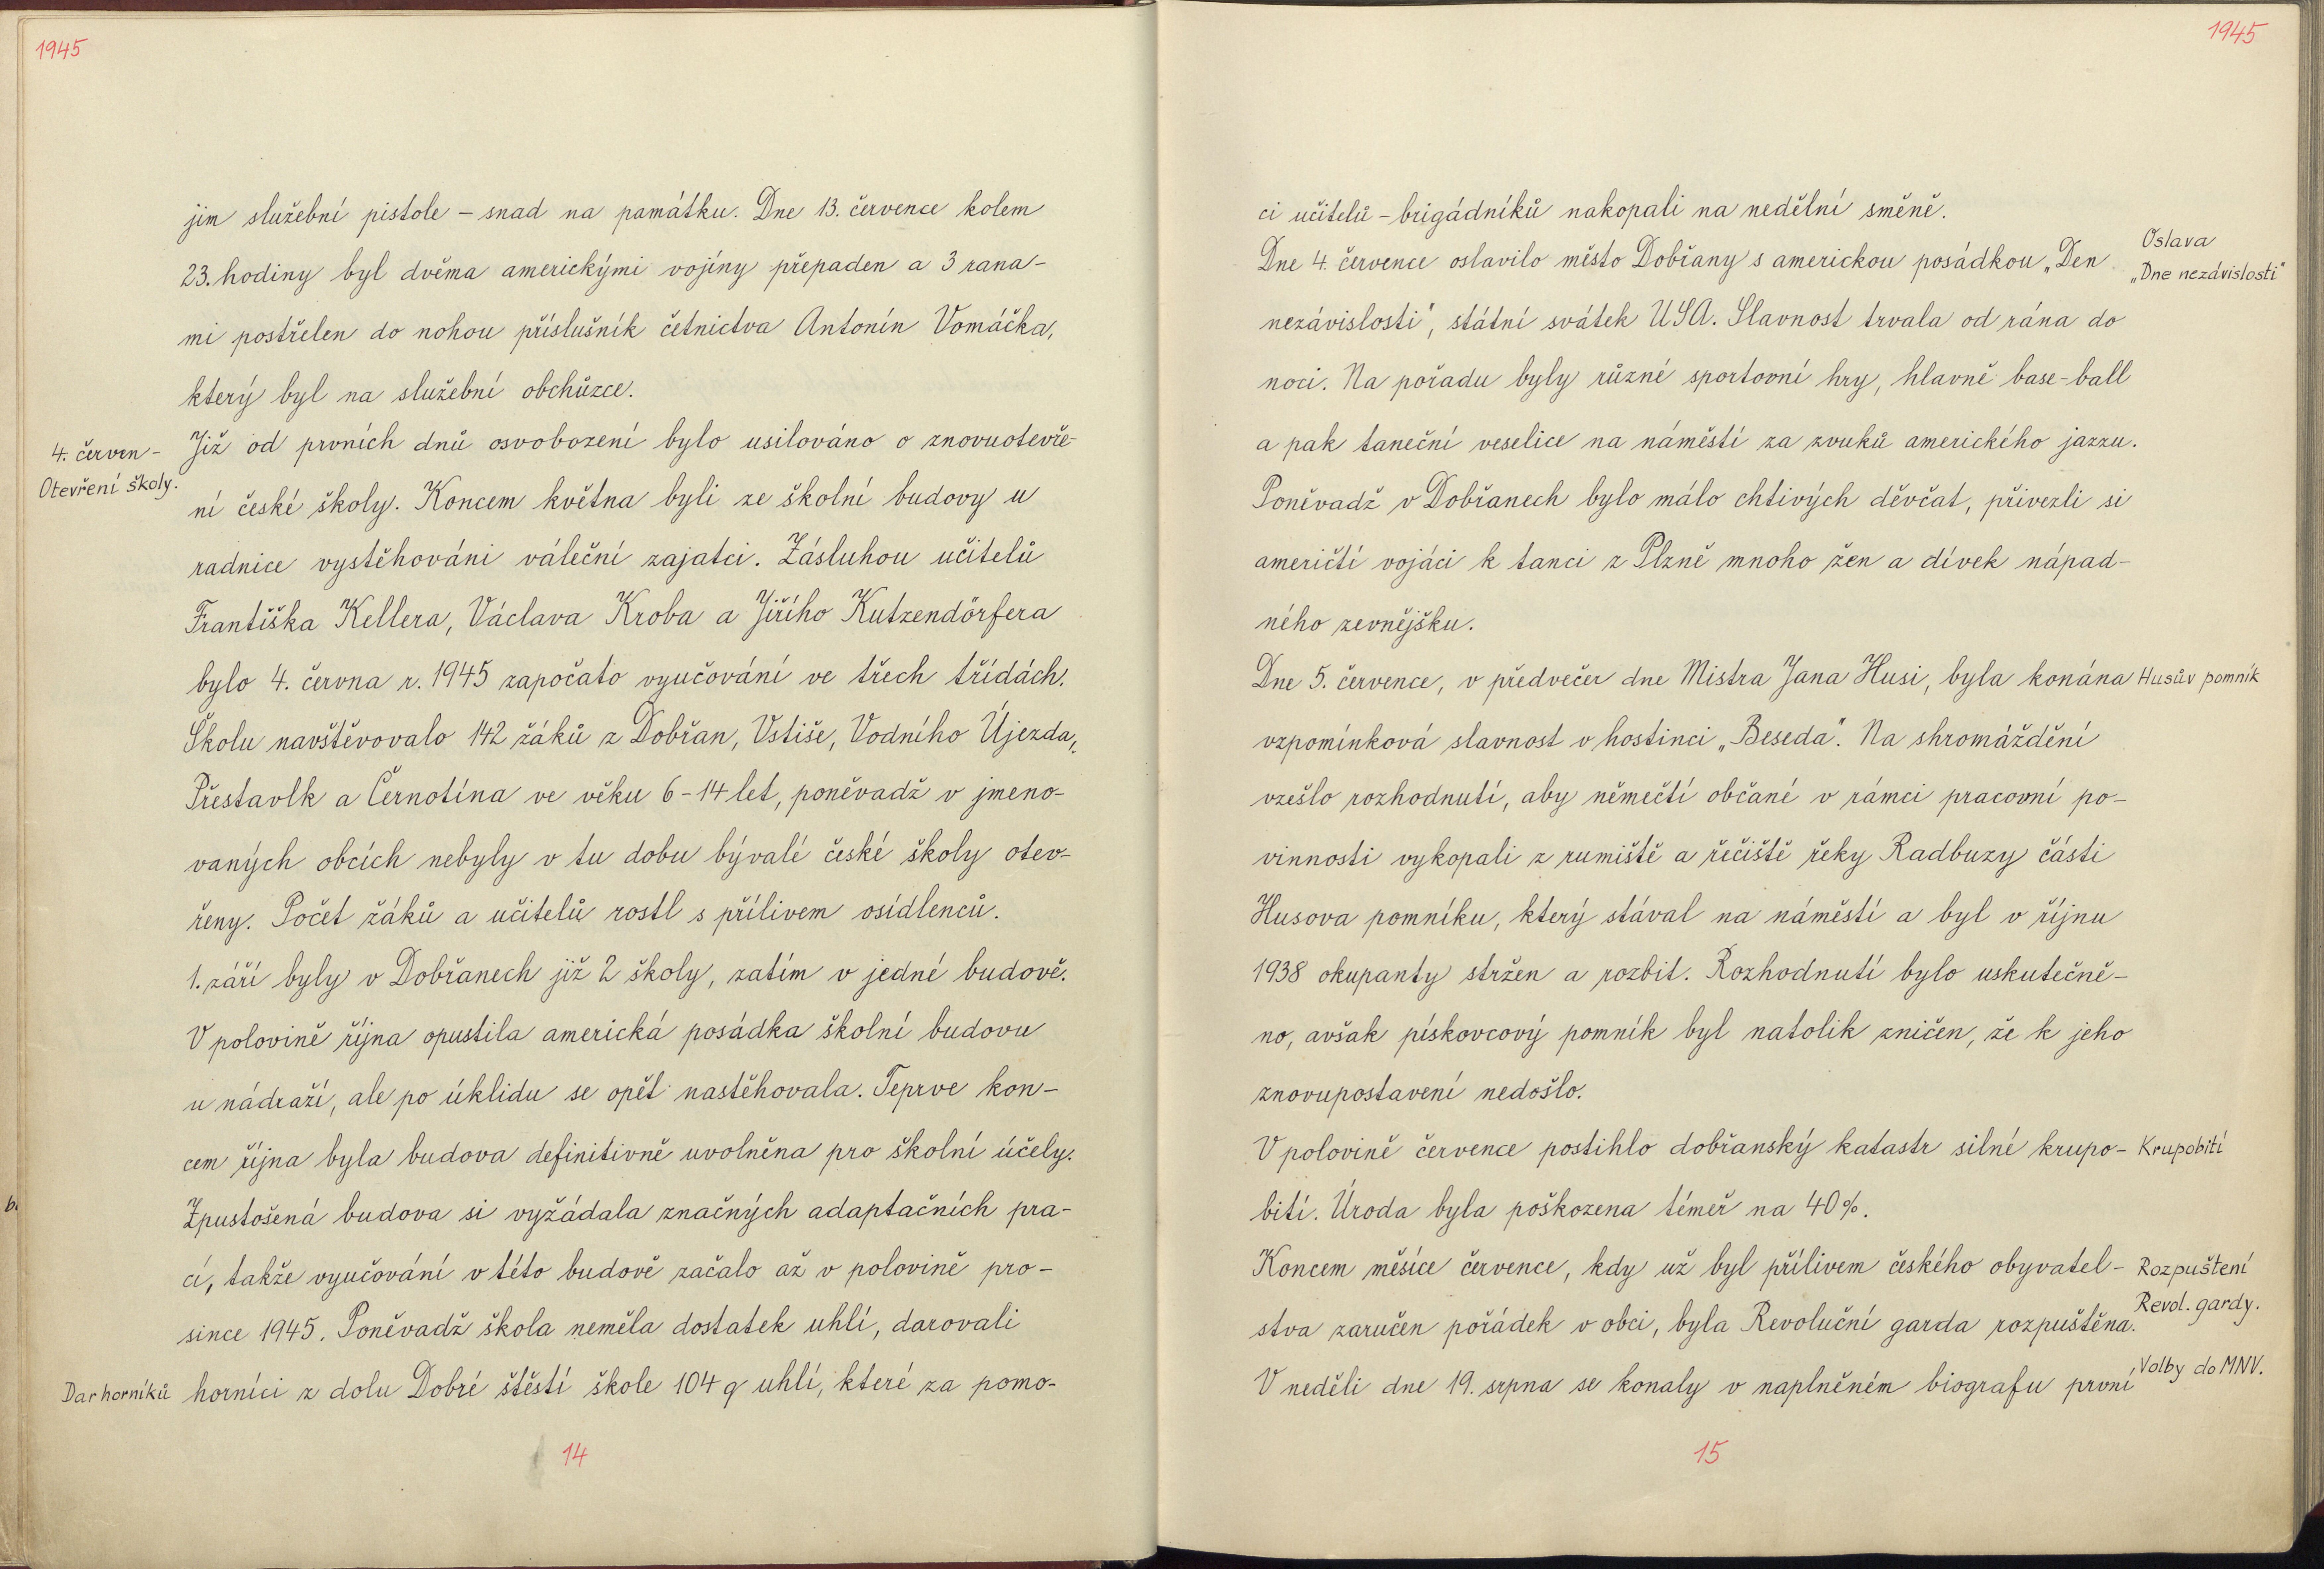 1945
jim služební pistole – snad na památku. Dne 13. července kolem
23. hodiny byl dvěma americkými vojíny přepaden a 3 rana-
mi postřelen do nohou příslušník četnictva Antonín Vomáčka,
který byl na služební obchůzce.
4. červen -
Otevření školy.
Již od prvních dnů osvobození bylo usilováno o znovuotevře-
ní české školy. Koncem května byli ze školní budovy u
radnice vystěhováni váleční zajatci. Zásluhou učitelů
Františka Kellera, Václava Kroba a Jiřího Kutzendörfera
bylo 4. června r. 1945 započato vyučování ve třech třídách.
Školu navštěvovalo 142 žáků z Dobřan, Vstiše, Vodního Újezda,
Přestavlk a Černotína ve věku 6-14 let, poněvadž v jmeno-
vaných obcích nebyly v tu dobu bývalé české školy otev-
řeny. Počet žáků a učitelů rostl s přílivem osídlenců.
1. září byly v Dobřanech již 2 školy, zatím v jedné budově.
V polovině října opustila americká posádka školní budovu
u nádraží, ale po úklidu se opět nastěhovala. Teprve kon-
cem října byla budova definitivně uvolněna pro školní účely.
Zpustošená budova si vyžádala značných adaptačních pra-
cí, takže vyučování v této budově začalo až v polovině pro-
since 1945. Poněvadž škola neměla dostatek uhlí, darovali
Dar horníků
horníci z dolu Dobré štěstí škole 104 q uhlí, které za pomo-
14
1945
ci učitelů – brigádníků nakopali na nedělní směně.
Dne 4. července oslavilo město Dobřany s americkou posádkou „Den
Oslava
„Dne nezávislosti"
nezávislosti", státní svátek USA. Slavnost trvala od rána do
noci. Na pořadu byly různé sportovní hry, hlavně base-ball
a pak taneční veselice na náměstí za zvuků amerického jazzu.
Poněvadž v Dobřanech bylo málo chtivých děvčat, přivezli si
američtí vojáci k tanci z Plzně mnoho žen a dívek nápad-
ného zevnějšku.
Dne 5. července, v předvečer dne Mistra Jana Husi, byla konána
Husův pomník
vzpomínková slavnost v hostinci „Beseda". Na shromáždění
vzešlo rozhodnutí, aby němečtí občané v rámci pracovní po-
vinnosti vykopali z rumiště a řečiště řeky Radbuzy části
Husova pomníku, který stával na náměstí a byl v říjnu
1938 okupanty stržen a rozbit. Rozhodnutí bylo uskutečně-
no, avšak pískovcový pomník byl natolik zničen, že k jeho
znovupostavení nedošlo.
V polovině července postihlo dobřanský katastr silné krupo-
Krupobití
bití. Úroda byla poškozena téměř na 40%.
Koncem měsíce července, kdy už byl přílivem českého obyvatel-
Rozpuštení
Revol. gardy.
stva zaručen pořádek v obci, byla Revoluční garda rozpuštěna.
V neděli dne 19. srpna se konaly v naplněném biografu první
Volby do MNV.
15